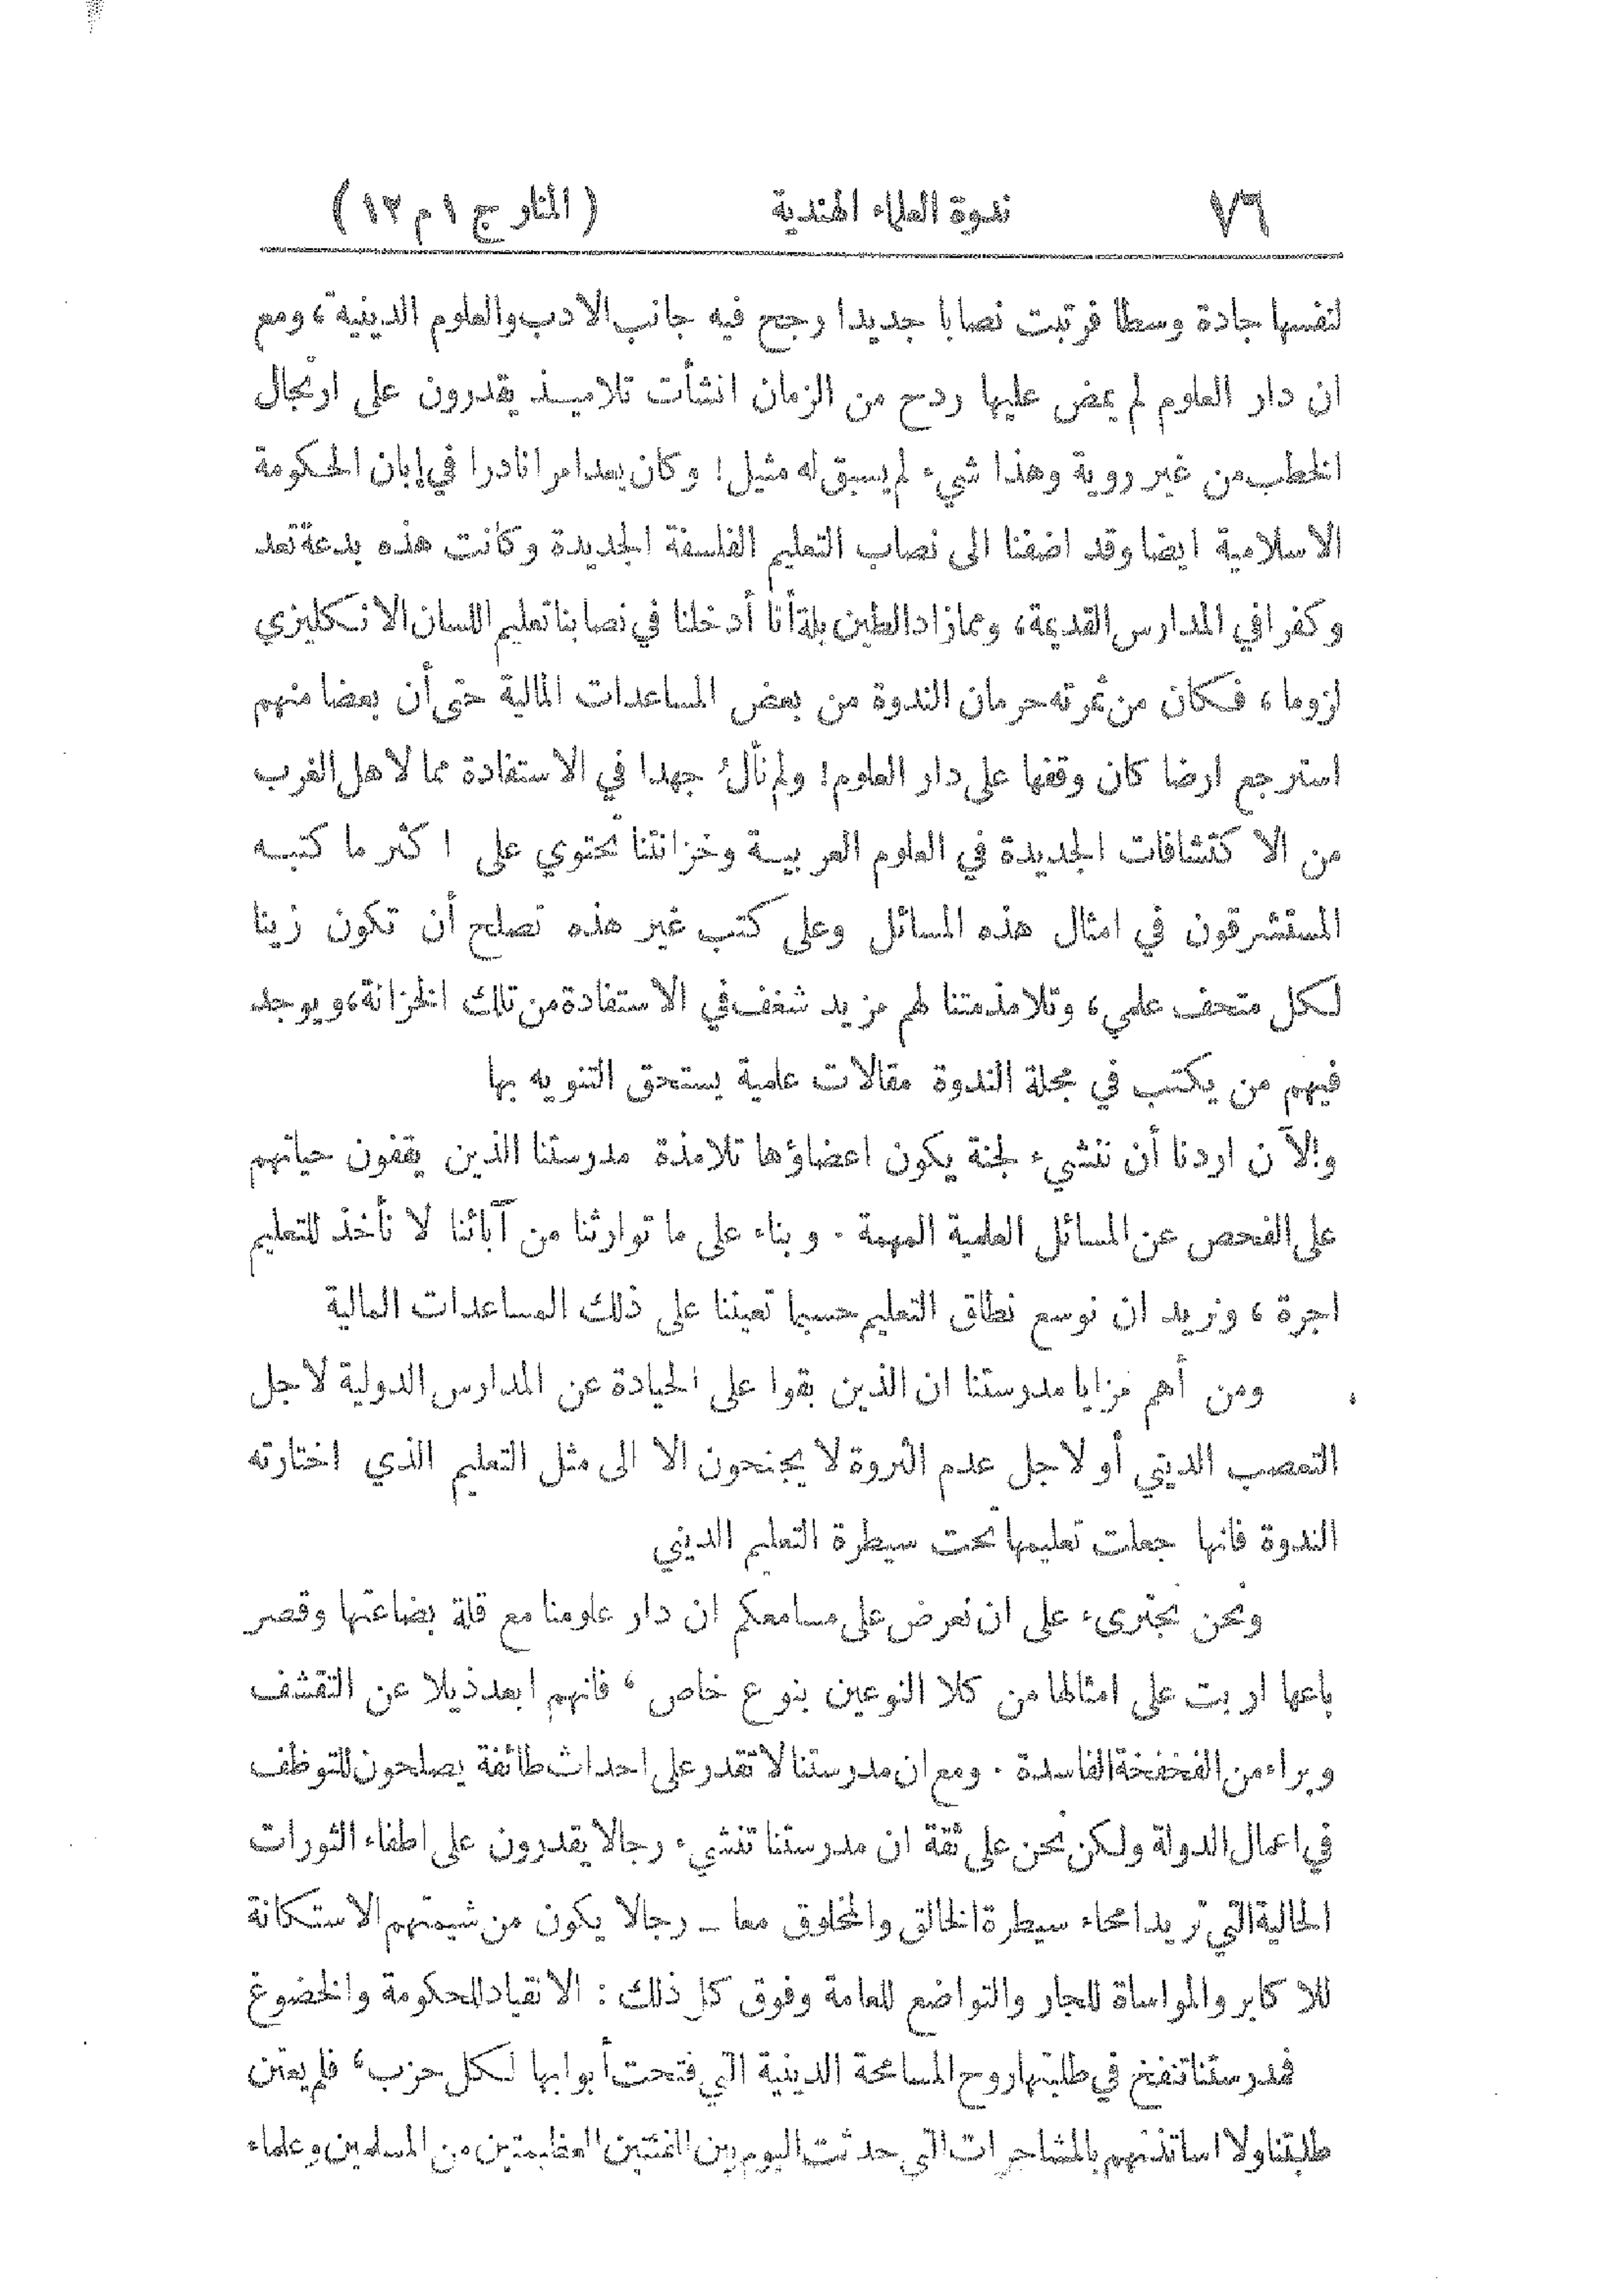 ٧٦ ندوة العلماء الهندية (المنار ج ١ م ١٢)
لنفسها جادة وسطا فرتبت نصابا جديدا رجح فيه جانب الادب والعلوم الدينية، ومع
ان دار العلوم لم يمض عليها ردح من الزمان انشأت تلاميذ يقدرون على ارتجال
الخطب من غير روية وهذا شيء لم يسبق له مثيل! وكان يعد امرا نادرا في إبان الحكومة
الاسلامية ايضا وقد اضفنا الى نصاب التعليم الفلسفة الجديدة وكانت هذه بدعة تعد
وكفرا في المدارس القديمة، ومما زاد الطين بلة أنا أدخلنا في نصابنا تعليم اللسان الانكليزي
لزوما، فكان من ثمرته حرمان الندوة من بعض المساعدات المالية حتى أن بعضا منهم
استرجع ارضا كان وقفها على دار العلوم! ولم نألُ جهدا في الاستفادة مما لاهل الغرب
من الاكتشافات الجديدة في العلوم العربية وخزانتنا تحتوي على اكثر ما كتبه
المستشرقون في امثال هذه المسائل وعلى كتب غير هذه تصلح أن تكون زينا
لكل متحف علمي، وتلامذمتنا لهم مزيد شغف في الاستفادة من تلك الخزانة، ويوجد
فيهم من يكتب في مجلة الندوة مقالات علمية يستحق التنويه بها
والآن اردنا أن ننشيء لجنة يكون اعضاؤها تلامذة مدرستنا الذين يقفون حياتهم
على الفحص عن المسائل العلمية المهمة. وبناء على ما توارثنا من آبائنا لا نأخذ للتعليم
اجرة، ونريد ان نوسع نطاق التعليم حسبما تعيننا على ذلك المساعدات المالية
ومن أهم مزايا مدرستنا ان الذين بقوا على الحيادة عن المدارس الدولية لاجل
التعصب الديني أو لاجل عدم الثروة لا يجنحون الا الى مثل التعليم الذي اختارته
الندوة فانها جعلت تعليمها تحت سيطرة التعليم الديني
ونحن نجترىء على ان نعرض على مسامعكم ان دار علومنا مع قلة بضاعتها وقصر
باعها اربت على امثالها من كلا النوعين بنوع خاص، فانهم ابعد ذيلا عن التقشف
وبراء من الفخفخة الفاسدة. ومع ان مدرستنا لا تقدر على احداث طائفة يصلحون للتوظف
في اعمال الدولة ولكن نحن على ثقة ان مدرستنا تنشيء رجالا يقدرون على اطفاء الثورات
الحالية التي تريد امحاء سيطرة الخالق والمخلوق معا ـ رجالا يكون من شيمتهم الاستكانة
للاكابر والمواساة للجار والتواضع للعامة وفوق كل ذلك: الانقياد للحكومة والخضوع
فمدرستنا تنفخ في طلبتها روح المسامحة الدينية التي فتحت أبوابها لكل حزب، فلم يعتن
طلبتنا ولا اساتذتهم بالمشاجرات التي حدثت اليوم بين الفئتين العظيمتين من المسلمين وعلماء